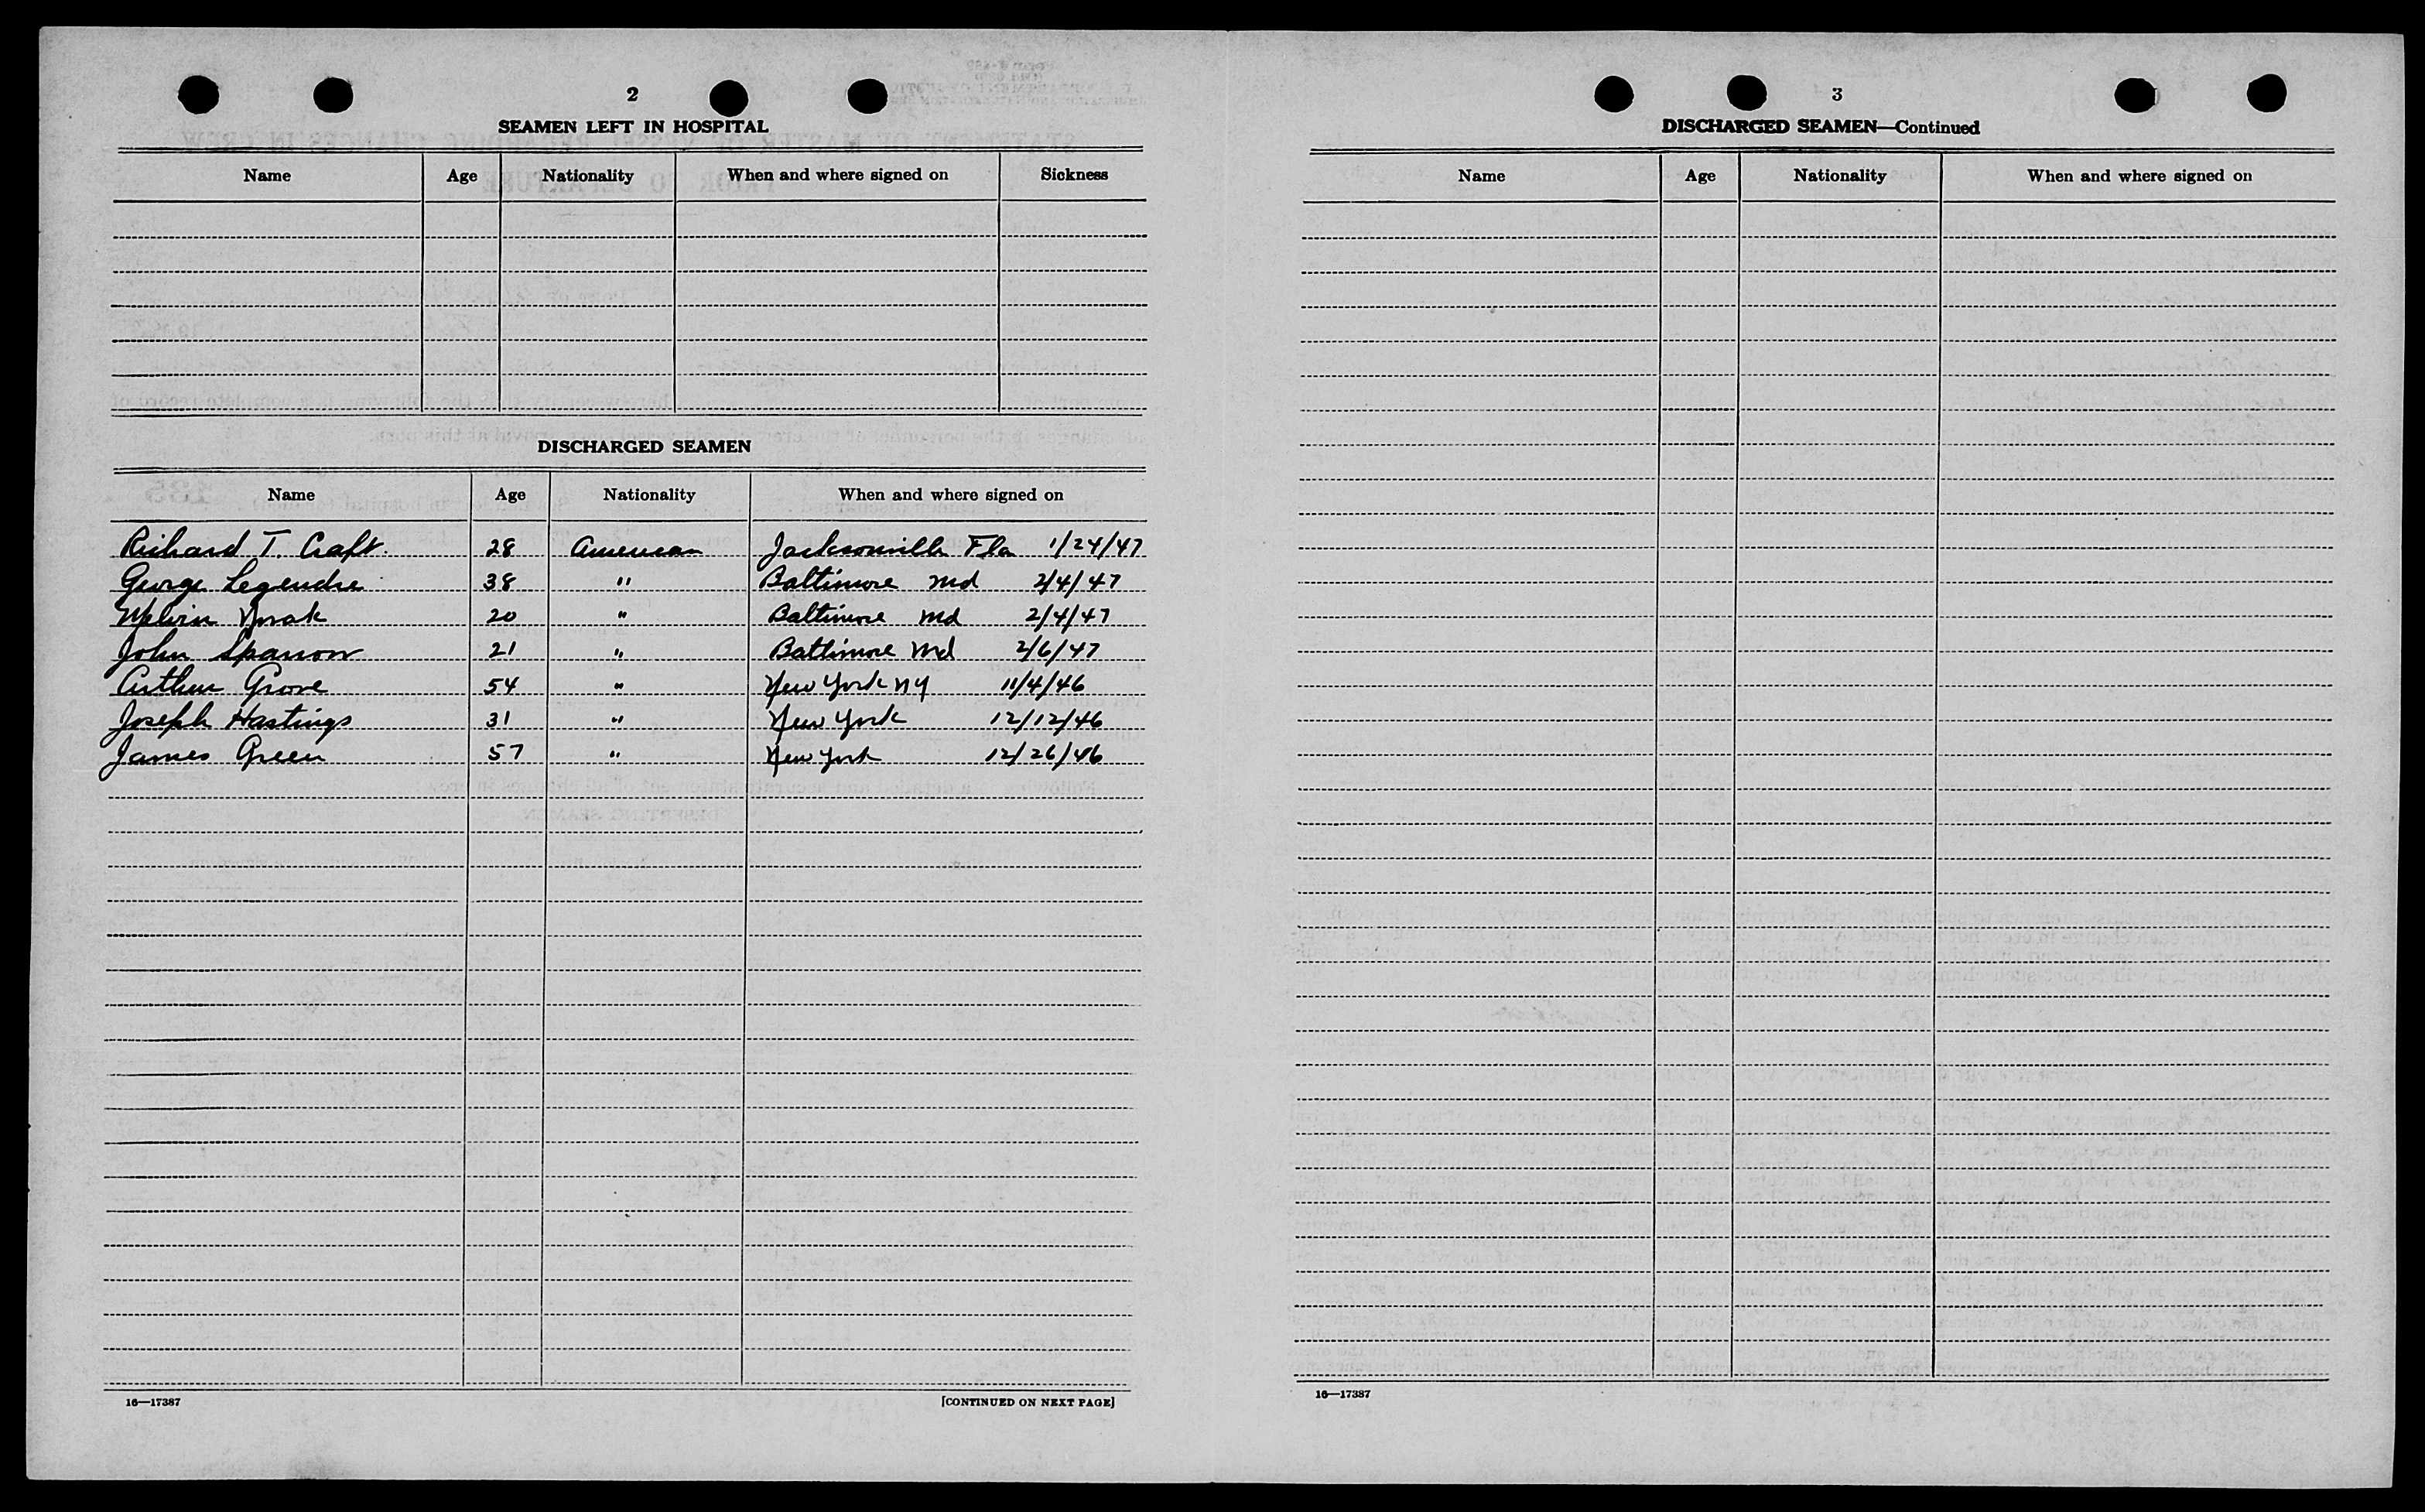 2
SEAMEN LEFT IN HOSPITAL
Name Age Nationality When and where signed on Sickness
DISCHARGED SEAMEN
Name Age Nationality When and where signed on
Richard T. Craft. 28 American Jacksonville Fla 1/24/47
George Legendre 38 " Baltimore Md 2/4/47
Melvin Novak 20 " Baltimore Md 2/4/47
John Sparrow 21 " Baltimore Md 2/6/47
Arthur Grove 54 " New York NY 11/4/46
Joseph Hastings 31 " New York 12/12/46
James Green 57 " New York 12/26/46
16—17387
[CONTINUED ON NEXT PAGE]
3
DISCHARGED SEAMEN—Continued
Name Age Nationality When and where signed on
16—17387